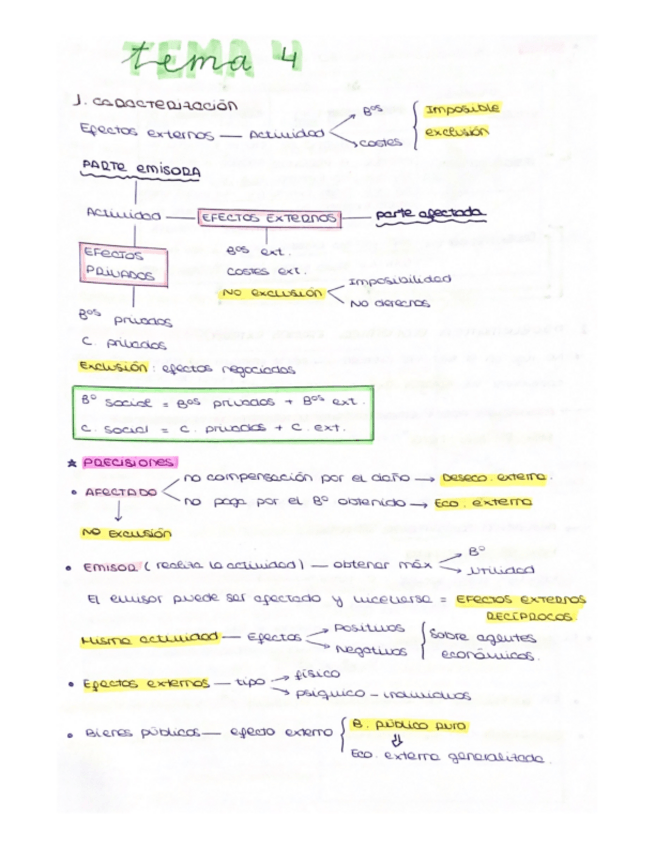 TEMA 4
tema 4
1. CARACTERIZACIÓN
Efectos externos — Actividad
Bºs
costes
Imposible
exclusión
PARTE EMISORA
Actividad — EFECTOS EXTERNOS — parte afectada
EFECTOS
PRIVADOS
Bºs ext.
costes ext.
NO exclusión
Imposibilidad
No derechos
Bºs privados
C. privados
Exclusión: efectos negociados
Bº social = Bºs privados + Bºs ext.
C. social = C. privados + C. ext.
★ PRECISIONES
• AFECTADO
no compensación por el daño → Deseco. externa.
no paga por el Bº obtenido → Eco. externa
NO Exclusión
• EMISOR (realiza la actividad) — obtener máx
Bº
Utilidad
El emisor puede ser afectado y viceversa = EFECTOS EXTERNOS
RECÍPROCOS.
Misma actividad — Efectos
Positivos
Negativos
Sobre agentes
económicos.
• Efectos externos — tipo
físico
psíquico – individuos
• Bienes públicos — efecto externo
B. público puro
Eco. externa generalizada.